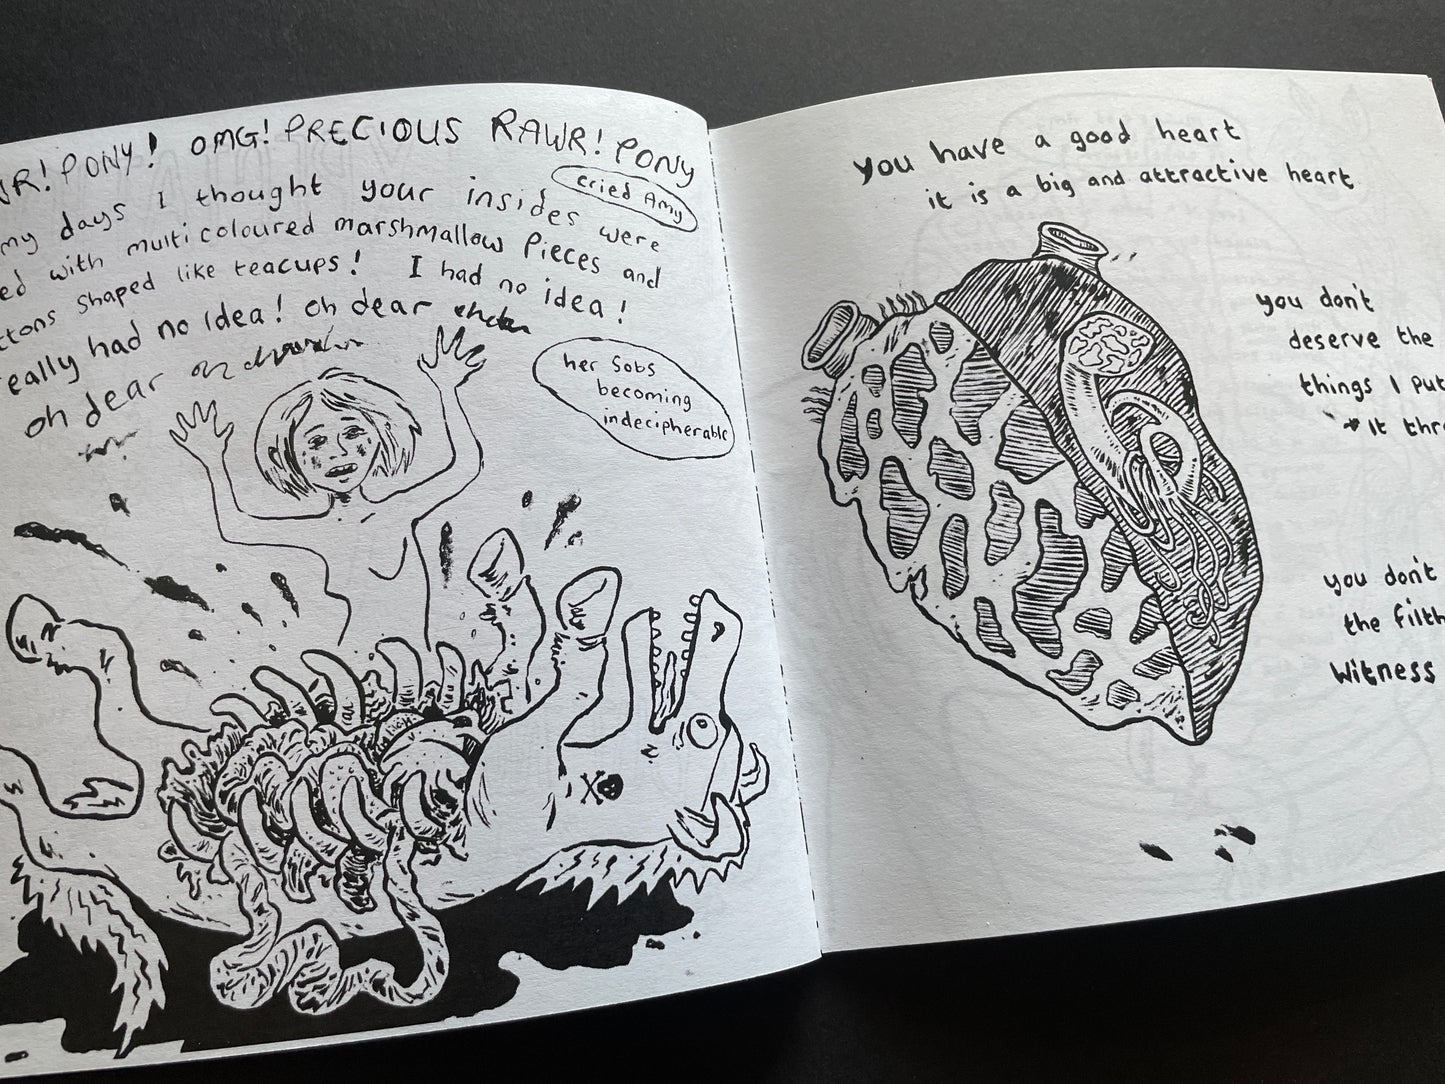 R! PONY! OMG! PRECIOUS RAWR! PONY
cried Amy
my days I thought your insides were
ed with multicoloured marshmallow pieces and
ttons shaped like teacups! I had no idea!
eally had no idea! oh dear
oh dear
her sobs
becoming
indecipherable
you have a good heart
it is a big and attractive heart
you don't
deserve the
things I put
it thr
you don't
the filth
witness